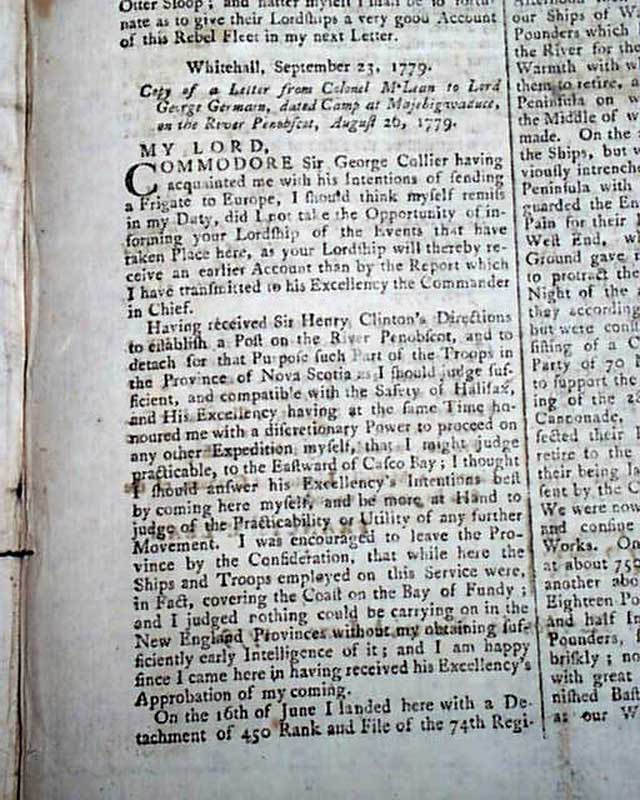 Otter Sloop; and flatter myself I shall be so fortu-
nate as to give their Lordships a very good Account
of this Rebel Fleet in my next Letter.
Whitehall, September 23, 1779.
Copy of a Letter from Colonel McLean to Lord
George Germain, dated Camp at Majebigwaduce,
on the River Penobſcot, Auguſt 26, 1779.
MY LORD,
COMMODORE Sir George Collier having
acquainted me with his Intentions of ſending
a Frigate to Europe, I ſhould think myſelf remiſs
in my Duty, did I not take the Opportunity of in-
forming your Lordſhip of the Events that have
taken Place here, as your Lordſhip will thereby re-
ceive an earlier Account than by the Report which
I have tranſmitted to his Excellency the Commander
in Chief.
Having received Sir Henry Clinton's Directions
to eſtabliſh a Poſt on the River Penobſcot, and to
detach for that Purpoſe ſuch Part of the Troops in
the Province of Nova Scotia as I ſhould judge ſuf-
ficient, and compatible with the Safety of Halifax,
and His Excellency having at the ſame Time ho-
noured me with a diſcretionary Power to proceed on
any other Expedition myſelf, that I might judge
practicable, to the Eaſtward of Caſco Bay; I thought
I ſhould anſwer his Excellency's Intentions beſt
by coming here myſelf, and be more at Hand to
judge of the Practicability or Utility of any further
Movement. I was encouraged to leave the Pro-
vince by the Conſideration, that while here the
Ships and Troops employed on this Service were,
in Fact, covering the Coaſt on the Bay of Fundy;
and I judged nothing could be carrying on in the
New England Provinces without my obtaining ſuf-
ficiently early Intelligence of it; and I am happy
ſince I came here in having received his Excellency's
Approbation of my coming.
On the 16th of June I landed here with a De-
tachment of 450 Rank and File of the 74th Regi-
our Ships of W
Pounders which
the River for the
Warmth with wh
them to retire, a
Peninſula on w
the Middle of w
made. On the
the Ships, but w
viouſly intrenche
Peninſula with
guarded the En
Pain for their
Weſt End, wh
Ground gave
to protract the
Night of the
they according
but were conſ
ſiſting of a C
Party of 70
to ſupport the
ing of the 28
Canconade,
ſected their
retire to the
their being la
ſent by the C
We were now
and confine
Works. On
at about 750
another abo
Eighteen Po
and half In
Pounders,
briſkly; no
with great
niſhed Baſt
as our W